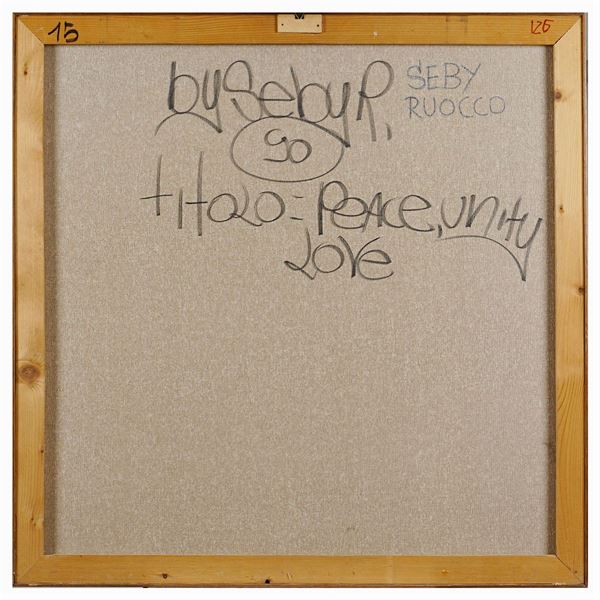 15
126
by Seby R.
SEBY
RUOCCO
90
titolo = Peace, Unity
Love